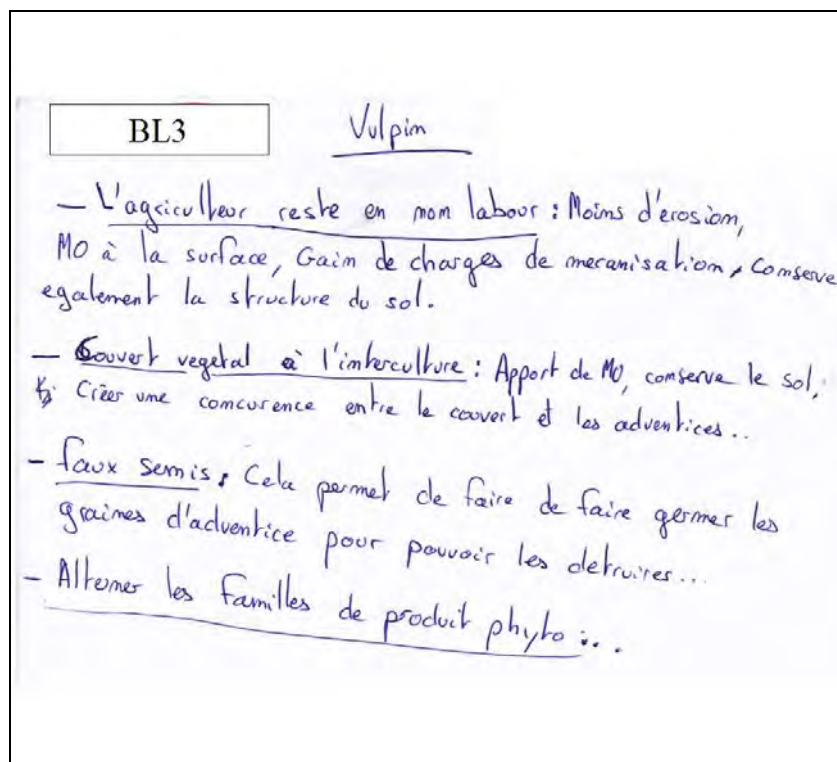 BL3
Vulpin
— L'agriculteur reste en non labour : Moins d'erosion,
MO à la surface, Gain de charges de mecanisation, Conserve
egalement la structure du sol.
— Couvert vegetal à l'interculture : Apport de MO, conserve le sol,
Créer une concurence entre le couvert et les adventices..
- faux semis : Cela permet de faire de faire germer les
graines d'adventice pour pouvoir les detruires...
- Alterner les familles de produit phyto :..